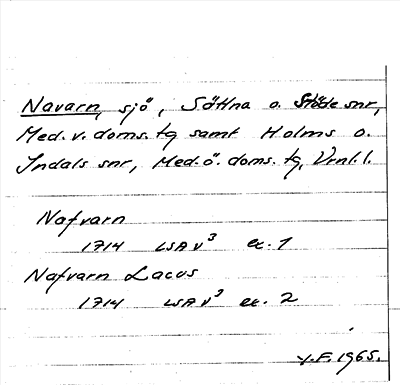 Navarn, sjö, Sättna o. Stöde snr,
Med.v.doms.tg samt Holms o.
Indals snr, Med.ö.doms.tg, Vrnl.l.
Nafvarn
1714 LSA V³ ex. 1
Nafvarn Lacus
1714 LSA V³ ex. 2
Y.F. 1965.